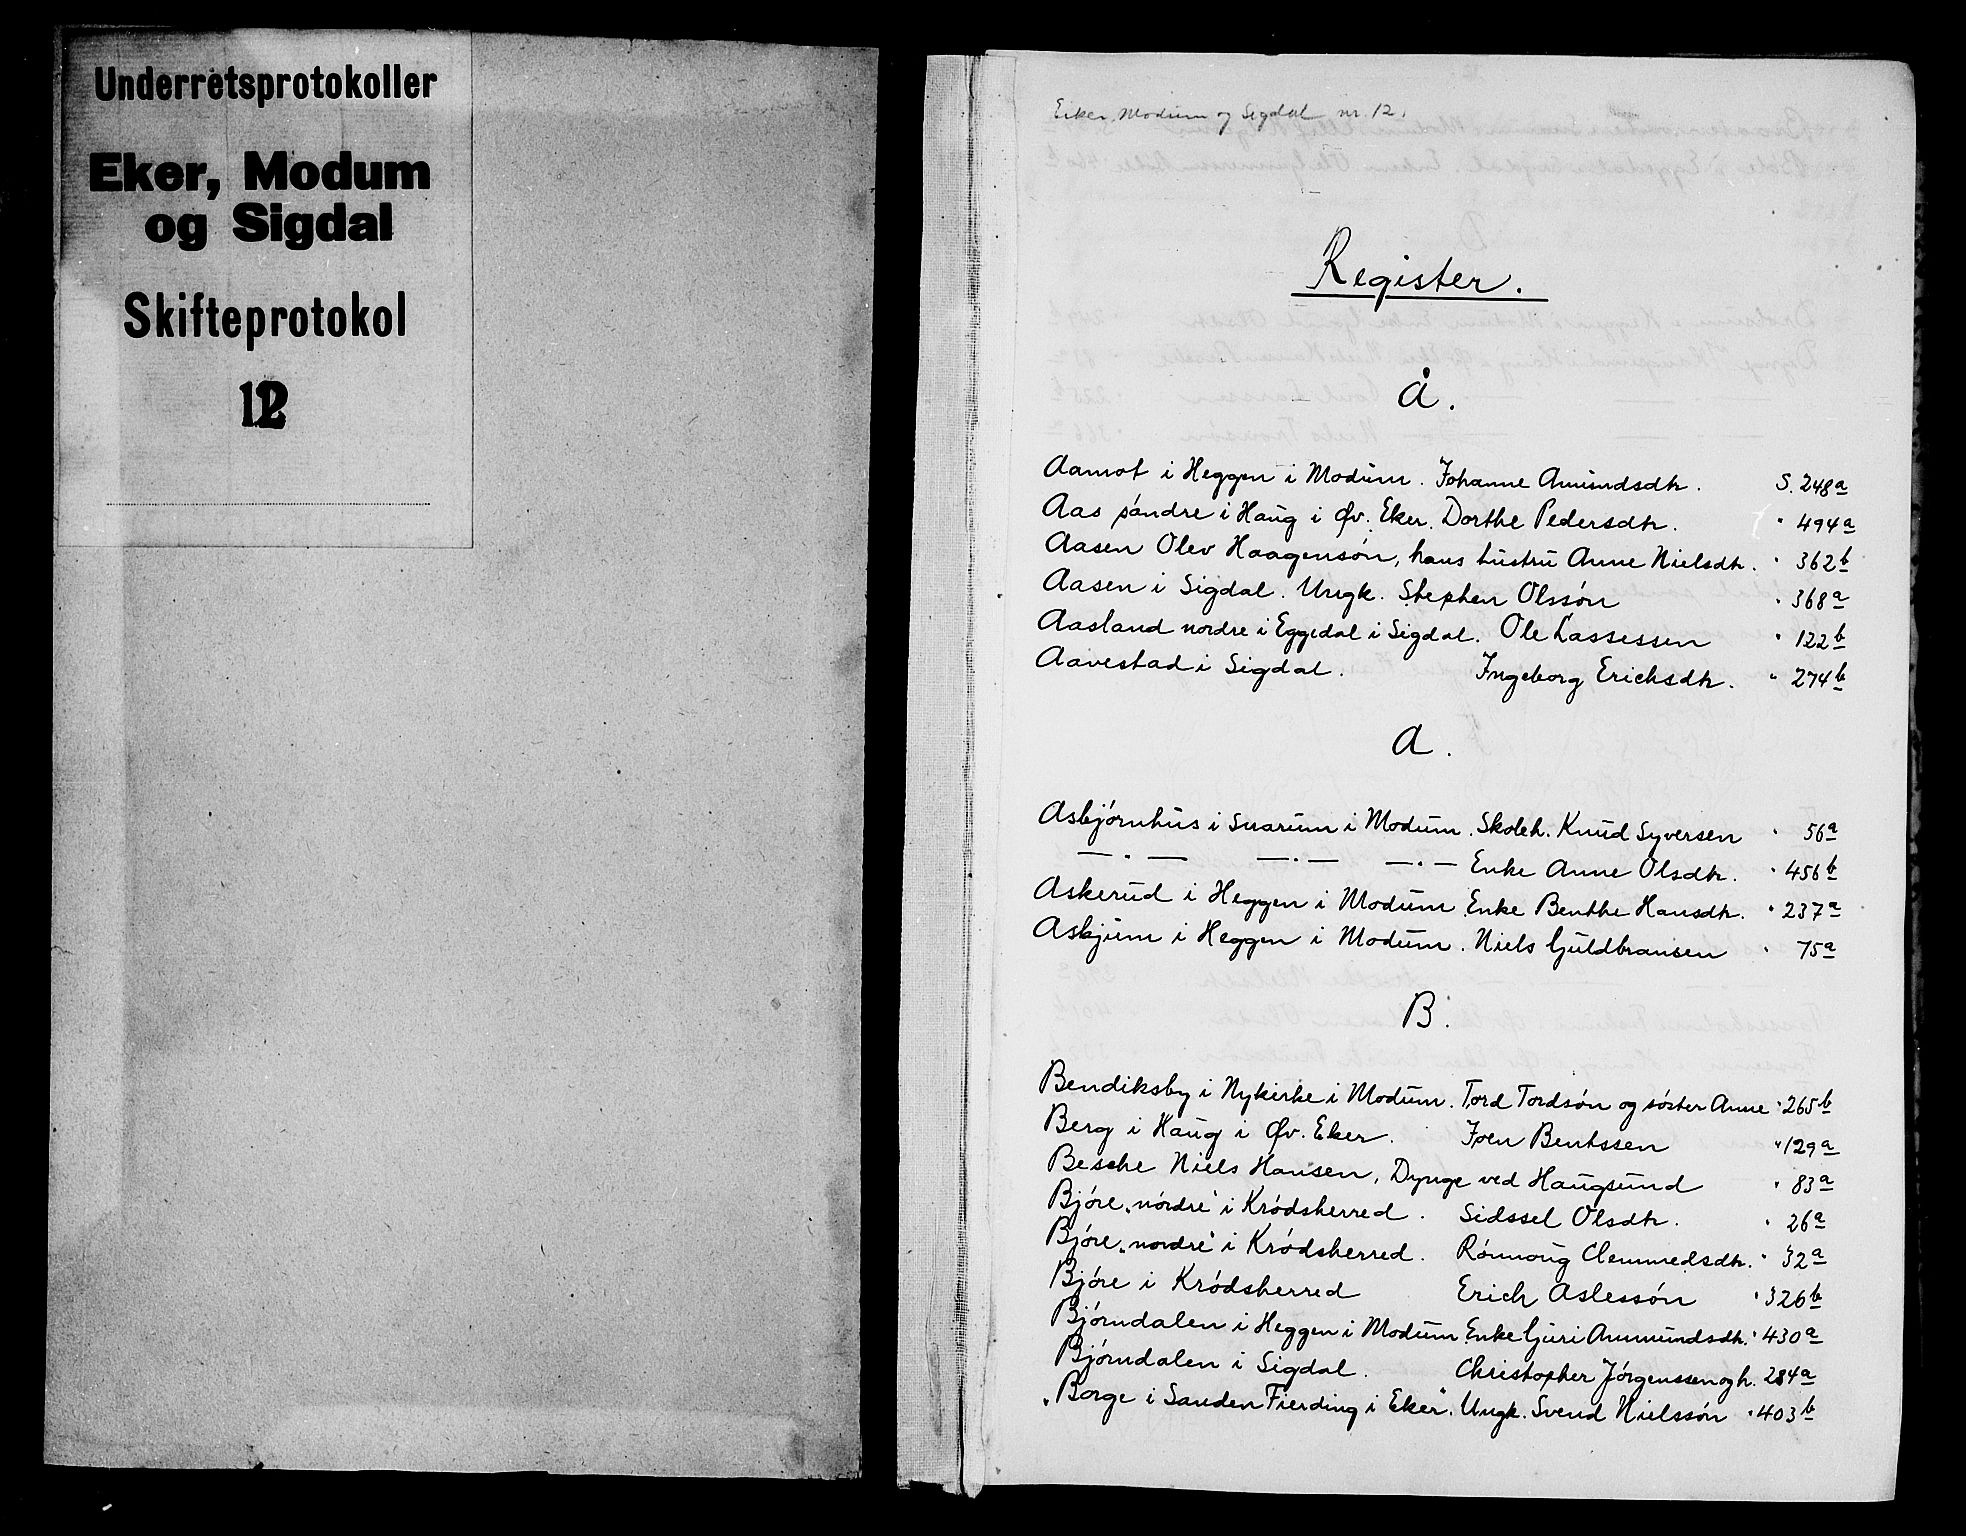 Underretsprotokoller
Eker, Modum
og Sigdal
Skifteprotokol
12
Eiker, Modum og Sigdal nr. 12.
Register.
Å.
Aamot i Heggen i Modum. Johanne Amundsdtr. S. 248a
Aas søndre i Haug i Øv. Eker. Dorthe Pedersdtr. " 494a
Aasen Olev Haagensøn, hans hustru Anne Nielsdtr. " 362b
Aasen i Sigdal. Ungk. Stephen Olssøn " 368a
Aasland nordre i Eggedal i Sigdal. Ole Lassessen " 122b
Aavestad i Sigdal. Ingeborg Erichsdtr. " 274b
A.
Asbjørnhus i Snarum i Modum. Skoleh. Knud Syversen " 56a
—"— —"— —"— Enke Anne Olsdtr. " 456b
Askerud i Heggen i Modum Enke Benthe Hansdtr. " 237a
Askjum i Heggen i Modum. Niels Guldbransen " 75a
B.
Bendiksby i Nykirke i Modum. Tord Tordsøn og søster Anne " 265b
Berg i Haug i Øv. Eker. Joen Bentssen " 129a
Besche Niels Hansen, Dynge ved Haugsund " 83a
Bjøre „nördre" i Krødsherred. Sidssel Olsdtr. " 26a
Bjøre „nordre" i Krødsherred. Rønnoug Clemmedsdtr. " 32a
Bjøre i Krødsherred Erich Aslessøn " 326b
Bjørndalen i Heggen i Modum Enke Guri Ammundsdtr. " 430a
Bjørndalen i Sigdal. Christopher Jørgenssen og h. 284a
„Borge i Sanden Fierding i Eker". Ungk. Svend Nielssøn " 403b